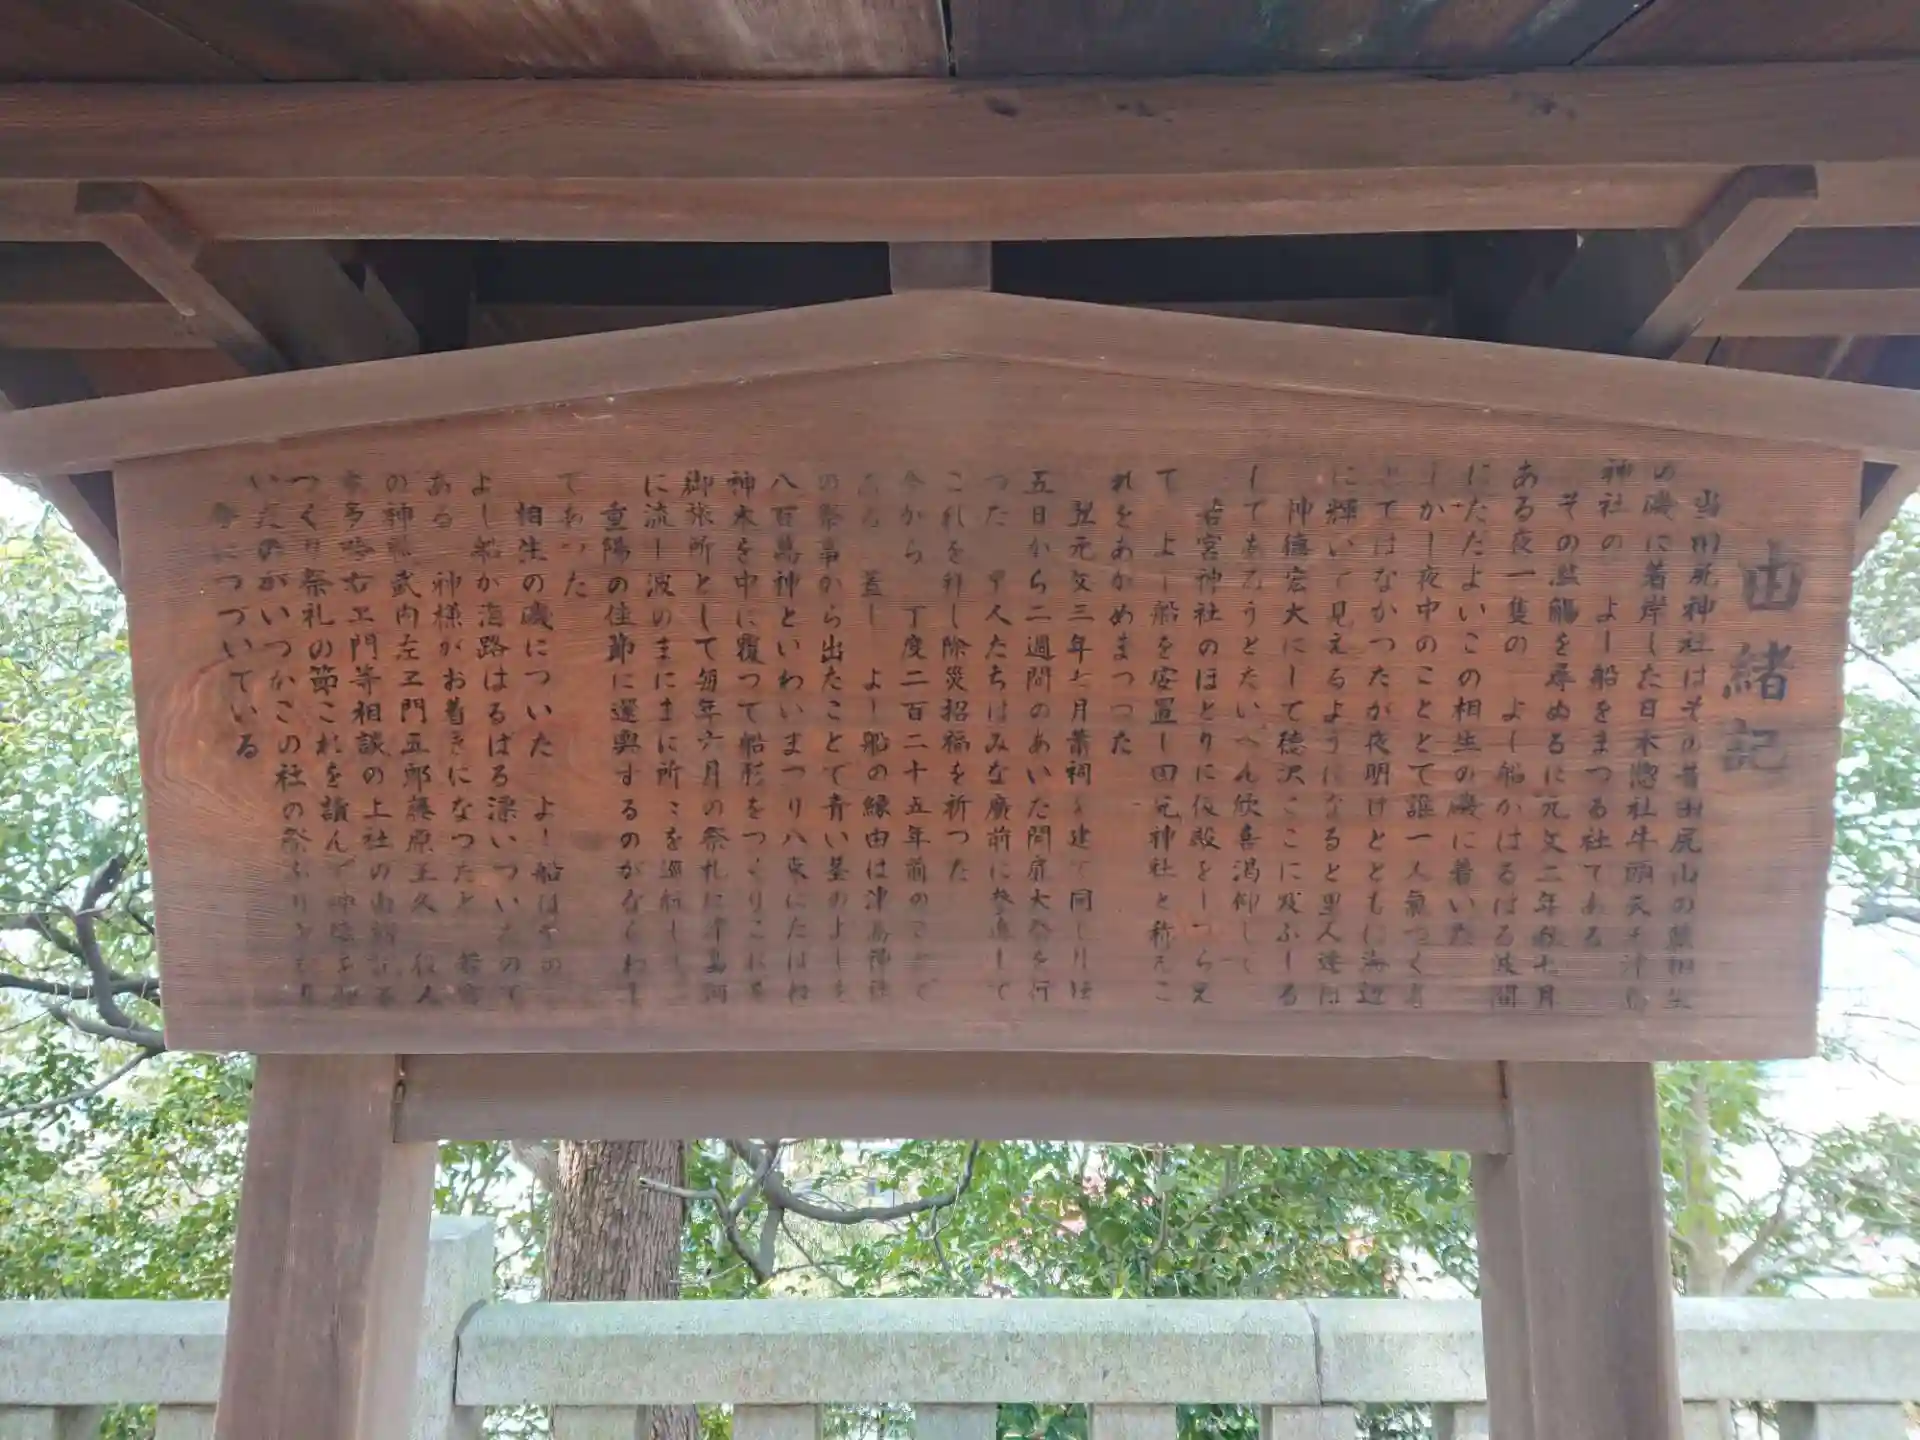 由緒記
神社はその昔田尻山の
の磯に着岸した日本惣社牛頭天王津島
神社の よし船をまつる社である
その濫觴を尋ぬるに元文二年秋七月
ある夜一隻の よし船がはるはる波間
にただよいこの相生の磯に着いた
しかし夜中のこととて誰一人氣つく者
とてはなかつたが夜明けとともに海辺
に輝いて見えるようになると里人達は
神徳宏大にして徳沢ここに及ぶしる
してあろうとたいへん欣喜渇仰して
若宮神社のほとりに仮殿をしつらえ
て よし船を安置し田尻神社と称えこ
れをあがめまつつた
翌元文三年七月叢祠を建て同じ月
五日から二週間のあいた開扉大祭を行
つた 里人たちはみな廣前に
これを拝し除災招福を祈つた
今から 丁度二百二十五年前のことで
ある 蓋し よし船の縁由は津島神社
の祭事から出たことで青い葦のよしを
八百萬神といわいまつり八束にたはね
神木を中に覆つて船形をつくりこれを
御旅所として毎年六月の祭礼に津島
に流し波のまにまに所々を巡行し
重陽の佳節に還輿するのがならわし
であつた
相生の磯についた よし船はその
よし船が海路はるばる漂いついたので
ある 神様がお着きになつたと 若宮
の神 武内左ヱ門五郎藤原 久
右ヱ門等相談の上社の由緒
つくり祭礼の節これを讀んで
いたのがいつかこの社の祭
につづいている